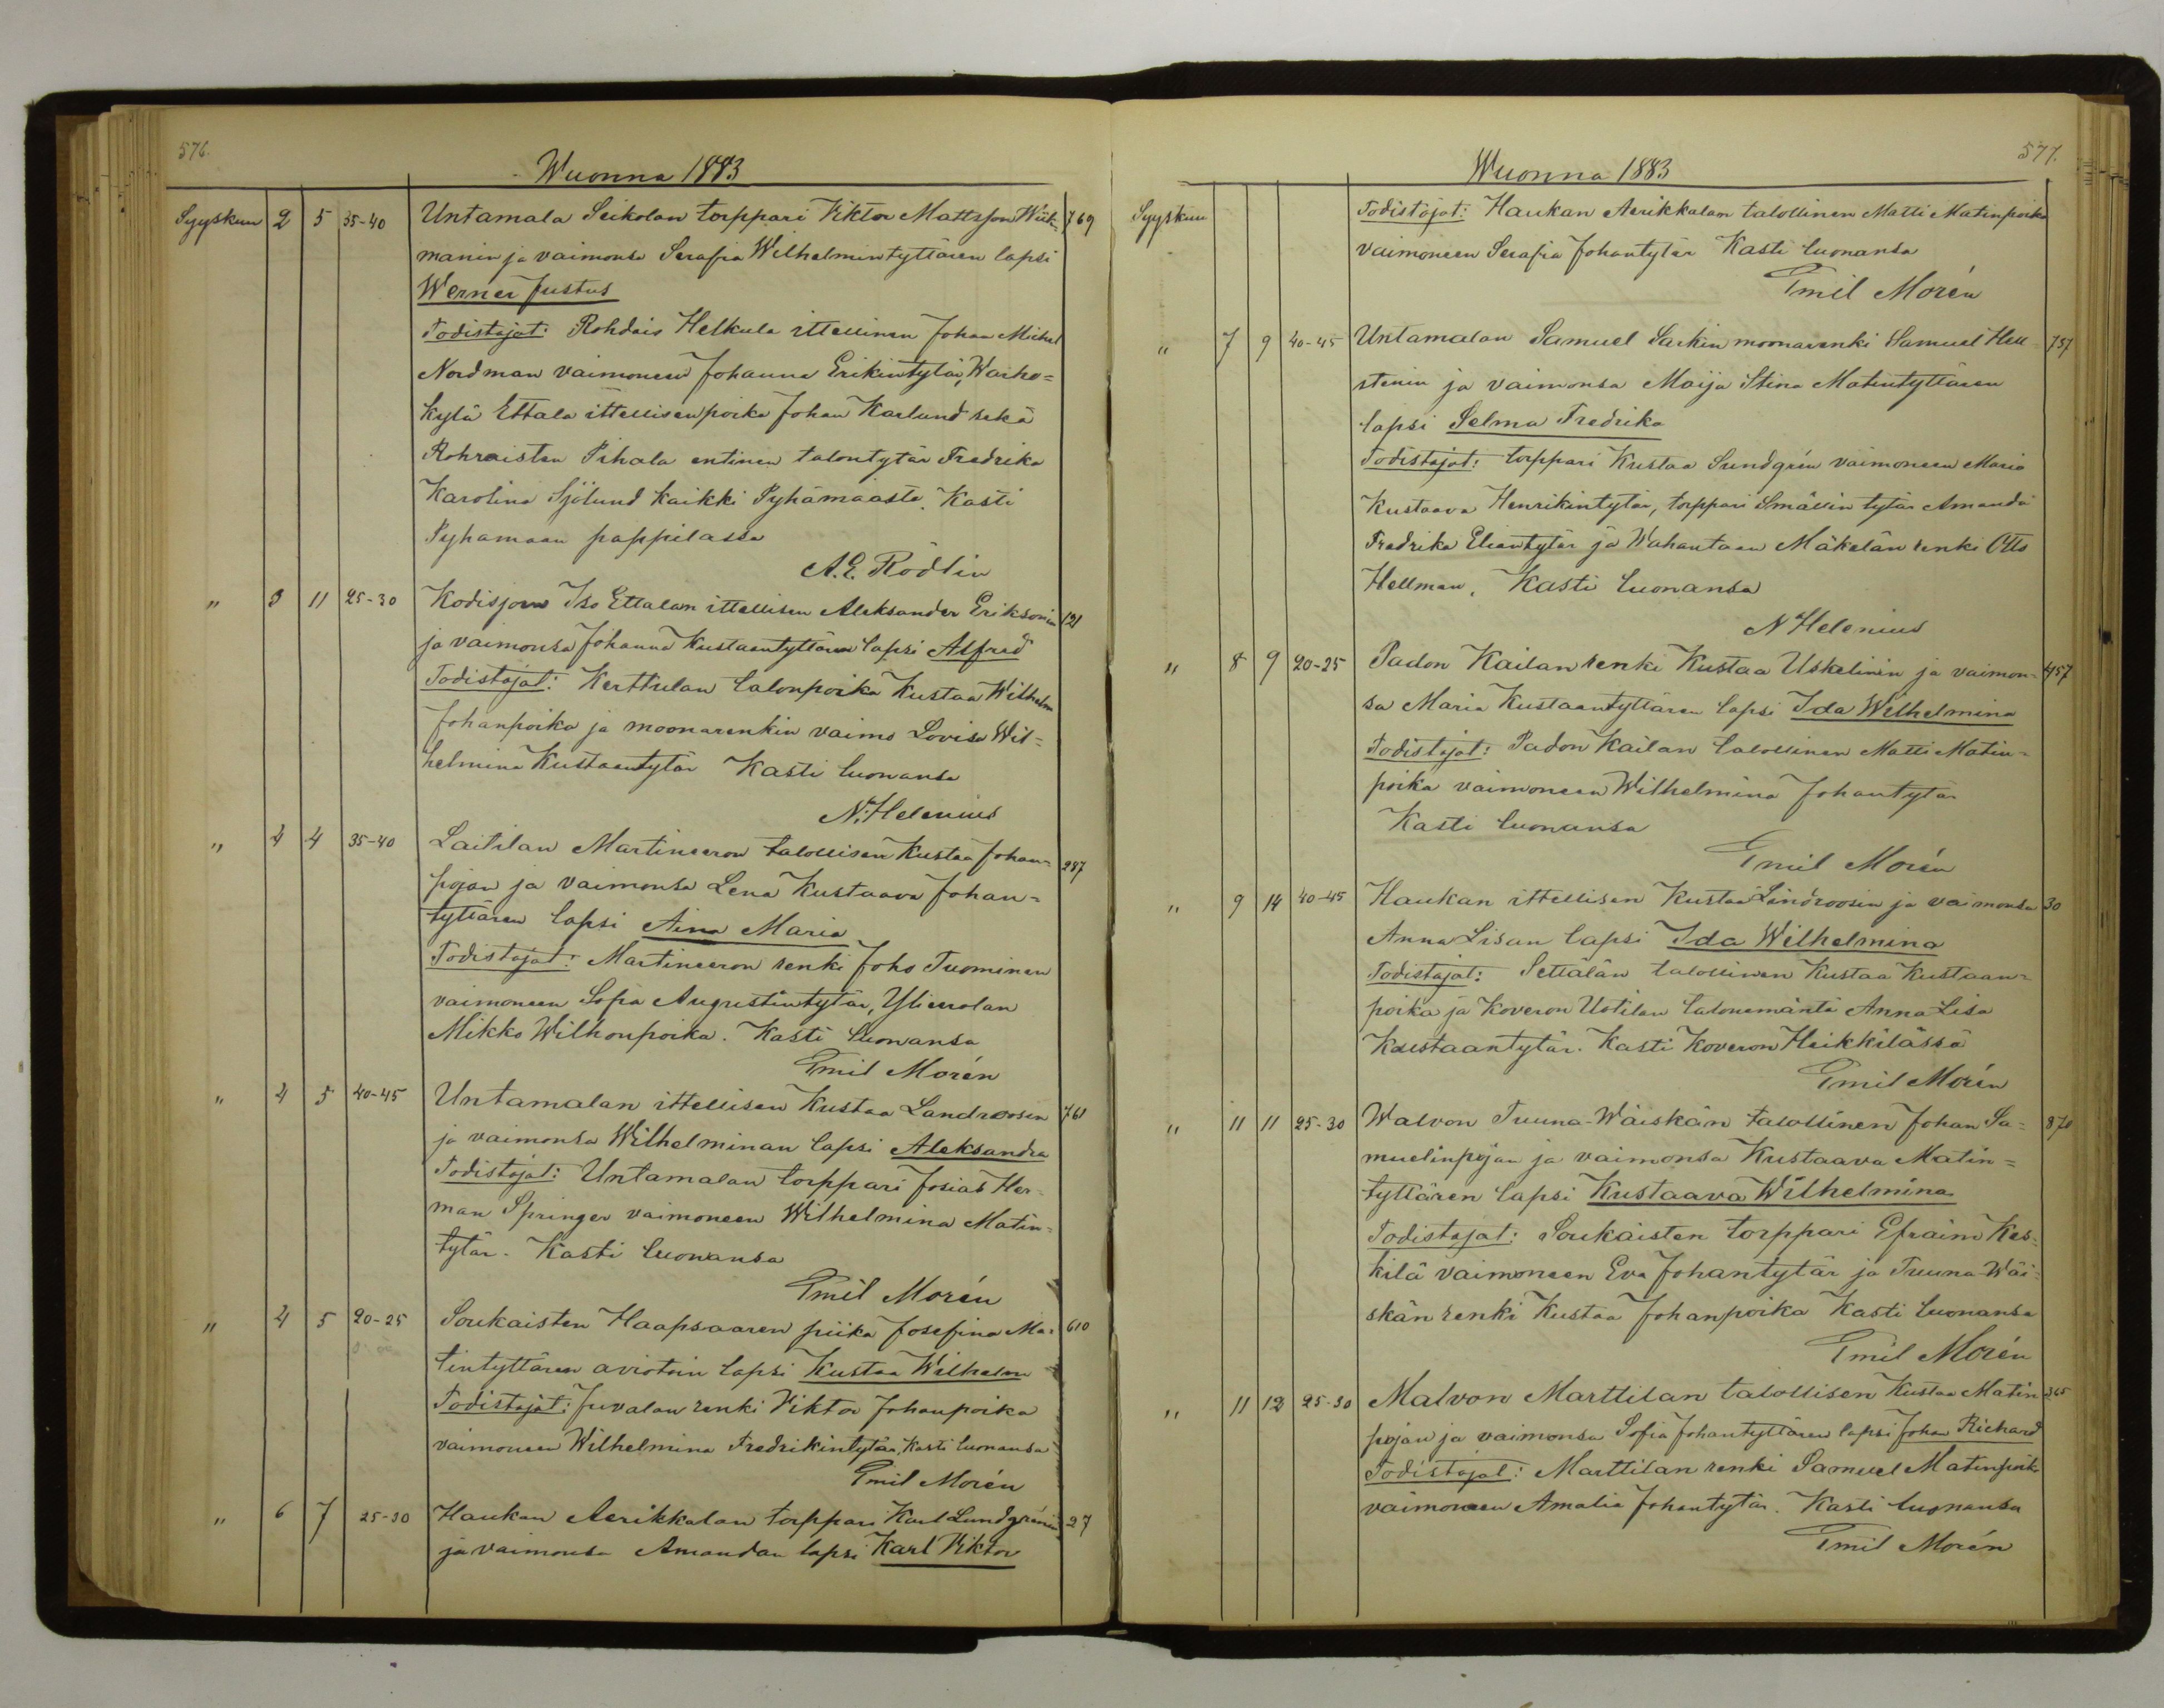 576.
Wuonna 1883
Syyskuu 2 5 35-40 Untamala Seikolan torppari Viktor Mattsson Wiik- 769
manin ja vaimonsa Serafia Wilhelmintyttären lapsi
Werner Justus
Todistajat: Rohdais Helkula ittellinen Johan Michel
Nordman vaimoneen Johanna Erikintytär, Warho=
kylä Ettala ittellisenpoika Johan Karlund sekä
Rohraisten Pihala entinen talontytär Fredrika
Karolina Sjölund kaikki Pyhämaasta. Kasti
Pyhamaan pappilassa
A. E. Rödlin
" 3 11 25-30 Kodisjoen Iso Ettalan ittellisen Aleksander Eriksonin 121
ja vaimonsa Johanna Kustaantyttären lapsi Alfred
Todistajat: Kerttulan talonpoika Kustaa Wilhelm
Johanpoika ja moonarenkin vaimo Lovisa Wil=
helmina Kustaantytär Kasti luonansa
N. Helenius
" 4 4 35-40 Laitilan Martineeron talollisen Kustaa Johan= 287
pojan ja vaimonsa Lena Kustaava Johan=
tyttären lapsi Aina Maria
Todistajat: Martineeron renki Joho Tuominen
vaimoneen Sofia Augustintytär, Ylieerolan
Mikko Wilhonpoika. Kasti luonansa
Emil Morén
" 4 5 40-45 Untamalan ittellisen Kustaa Landroosin 761
ja vaimonsa Wilhelminan lapsi Aleksandra
Todistajat: Untamalan torppari Josias Her-
man Springer vaimoneen Wilhelmina Matin=
tytär. Kasti luonansa
Emil Morén
" 4 5 20-25 Soukaisten Haapsaaren piika Josefina Ma= 610
tintyttären aviotoin lapsi Kustaa Wilhelm
Todistajat: Juvalan renki Viktor Johanpoika
vaimoneen Wilhelmina Fredrikintytär, Kasti luonansa
Emil Morén
" 6 7 25-30 Haukan Aerikkalan torppari Karl Lundgrénin 27
ja vaimonsa Amandan lapsi Karl Viktor
577.
Wuonna 1883
Syyskuu Todistajat: Haukan Aerikkalan talollinen Matti Matinpoika
vaimoneen Serafia Johantytär Kasti luonansa
Emil Morén
" 7 9 40-45 Untamalan Samuel Sarkin moonarenki Samuel Hell- 757
stenin ja vaimonsa Maija Stina Matintyttären
lapsi Selma Fredrika
Todistajat: torppari Kustaa Sundgrén vaimoneen Maria
Kustaava Henrikintytär, torppari Smällin tytär Amanda
Fredrika Eliantytär ja Wahantaan Mäkelän renki Otto
Hellman, Kasti luonansa
N Helenius
" 8 9 20-25 Padon Kailan renki Kustaa Uskelinin ja vaimon= 457
sa Maria Kustaantyttären lapsi Ida Wilhelmina
Todistajat: Padon Kailan talollinen Matti Matin=
poika vaimoneen Wilhelmina Johantytär
Kasti luonansa
Emil Morén
" 9 14 40-45 Haukan ittellisen Kustaa Lindroosin ja vaimonsa 30
Anna Lisan lapsi Ida Wilhelmina
Todistajat: Settälän talollinen Kustaa Kustaan=
poika ja Koveron Uotilan talonemäntä Anna Lisa
Kustaantytär. Kasti Koveron Heikkilässä
Emil Morén
" 11 11 25-30 Walvon Tuuna-Wäiskän talollinen Johan Sa= 870
muelinpojan ja vaimonsa Kustaava Matin=
tyttären lapsi Kustaava Wilhelmina
Todistajat: Soukaisten torppari Efraim Kes=
kilä vaimoneen Eva Johantytär ja Tuuna-Wäi=
skän renki Kustaa Johanpoika Kasti luonansa
Emil Morén
" 11 12 25-30 Malvon Marttilan talollisen Kustaa Matin 365
pojan ja vaimonsa Sofia Johantyttären lapsi Johan Richard
Todistajat: Marttilan renki Samuel Matinpoika
vaimoneen Amalia Johantytär. Kasti luonansa
Emil Morén